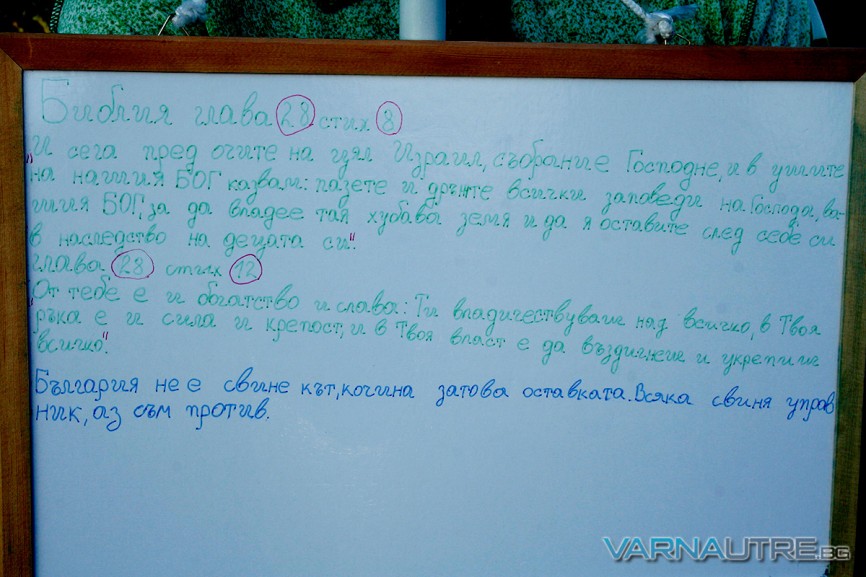 Библия глава 28 стих 8
"И сега пред очите на цял Израил, събрание Господне, и в ушите
на нашия БОГ казвам: пазете и дръжте всички заповеди на Господа, ва-
шия БОГ, за да владее тая хубава земя и да я оставите след себе си
в наследство на децата си".
глава 28 стих 12
"От тебе е и богатство и слава: Ти владичествуваш над всичко, в Твоя
ръка е и сила и крепост, и в Твоя власт е да въздигнеш и укрепиш
всичко".
България не е свине кът, кочина затова оставката. Всяка свиня управ
ник, аз съм против.
VARNAUTRE.BG